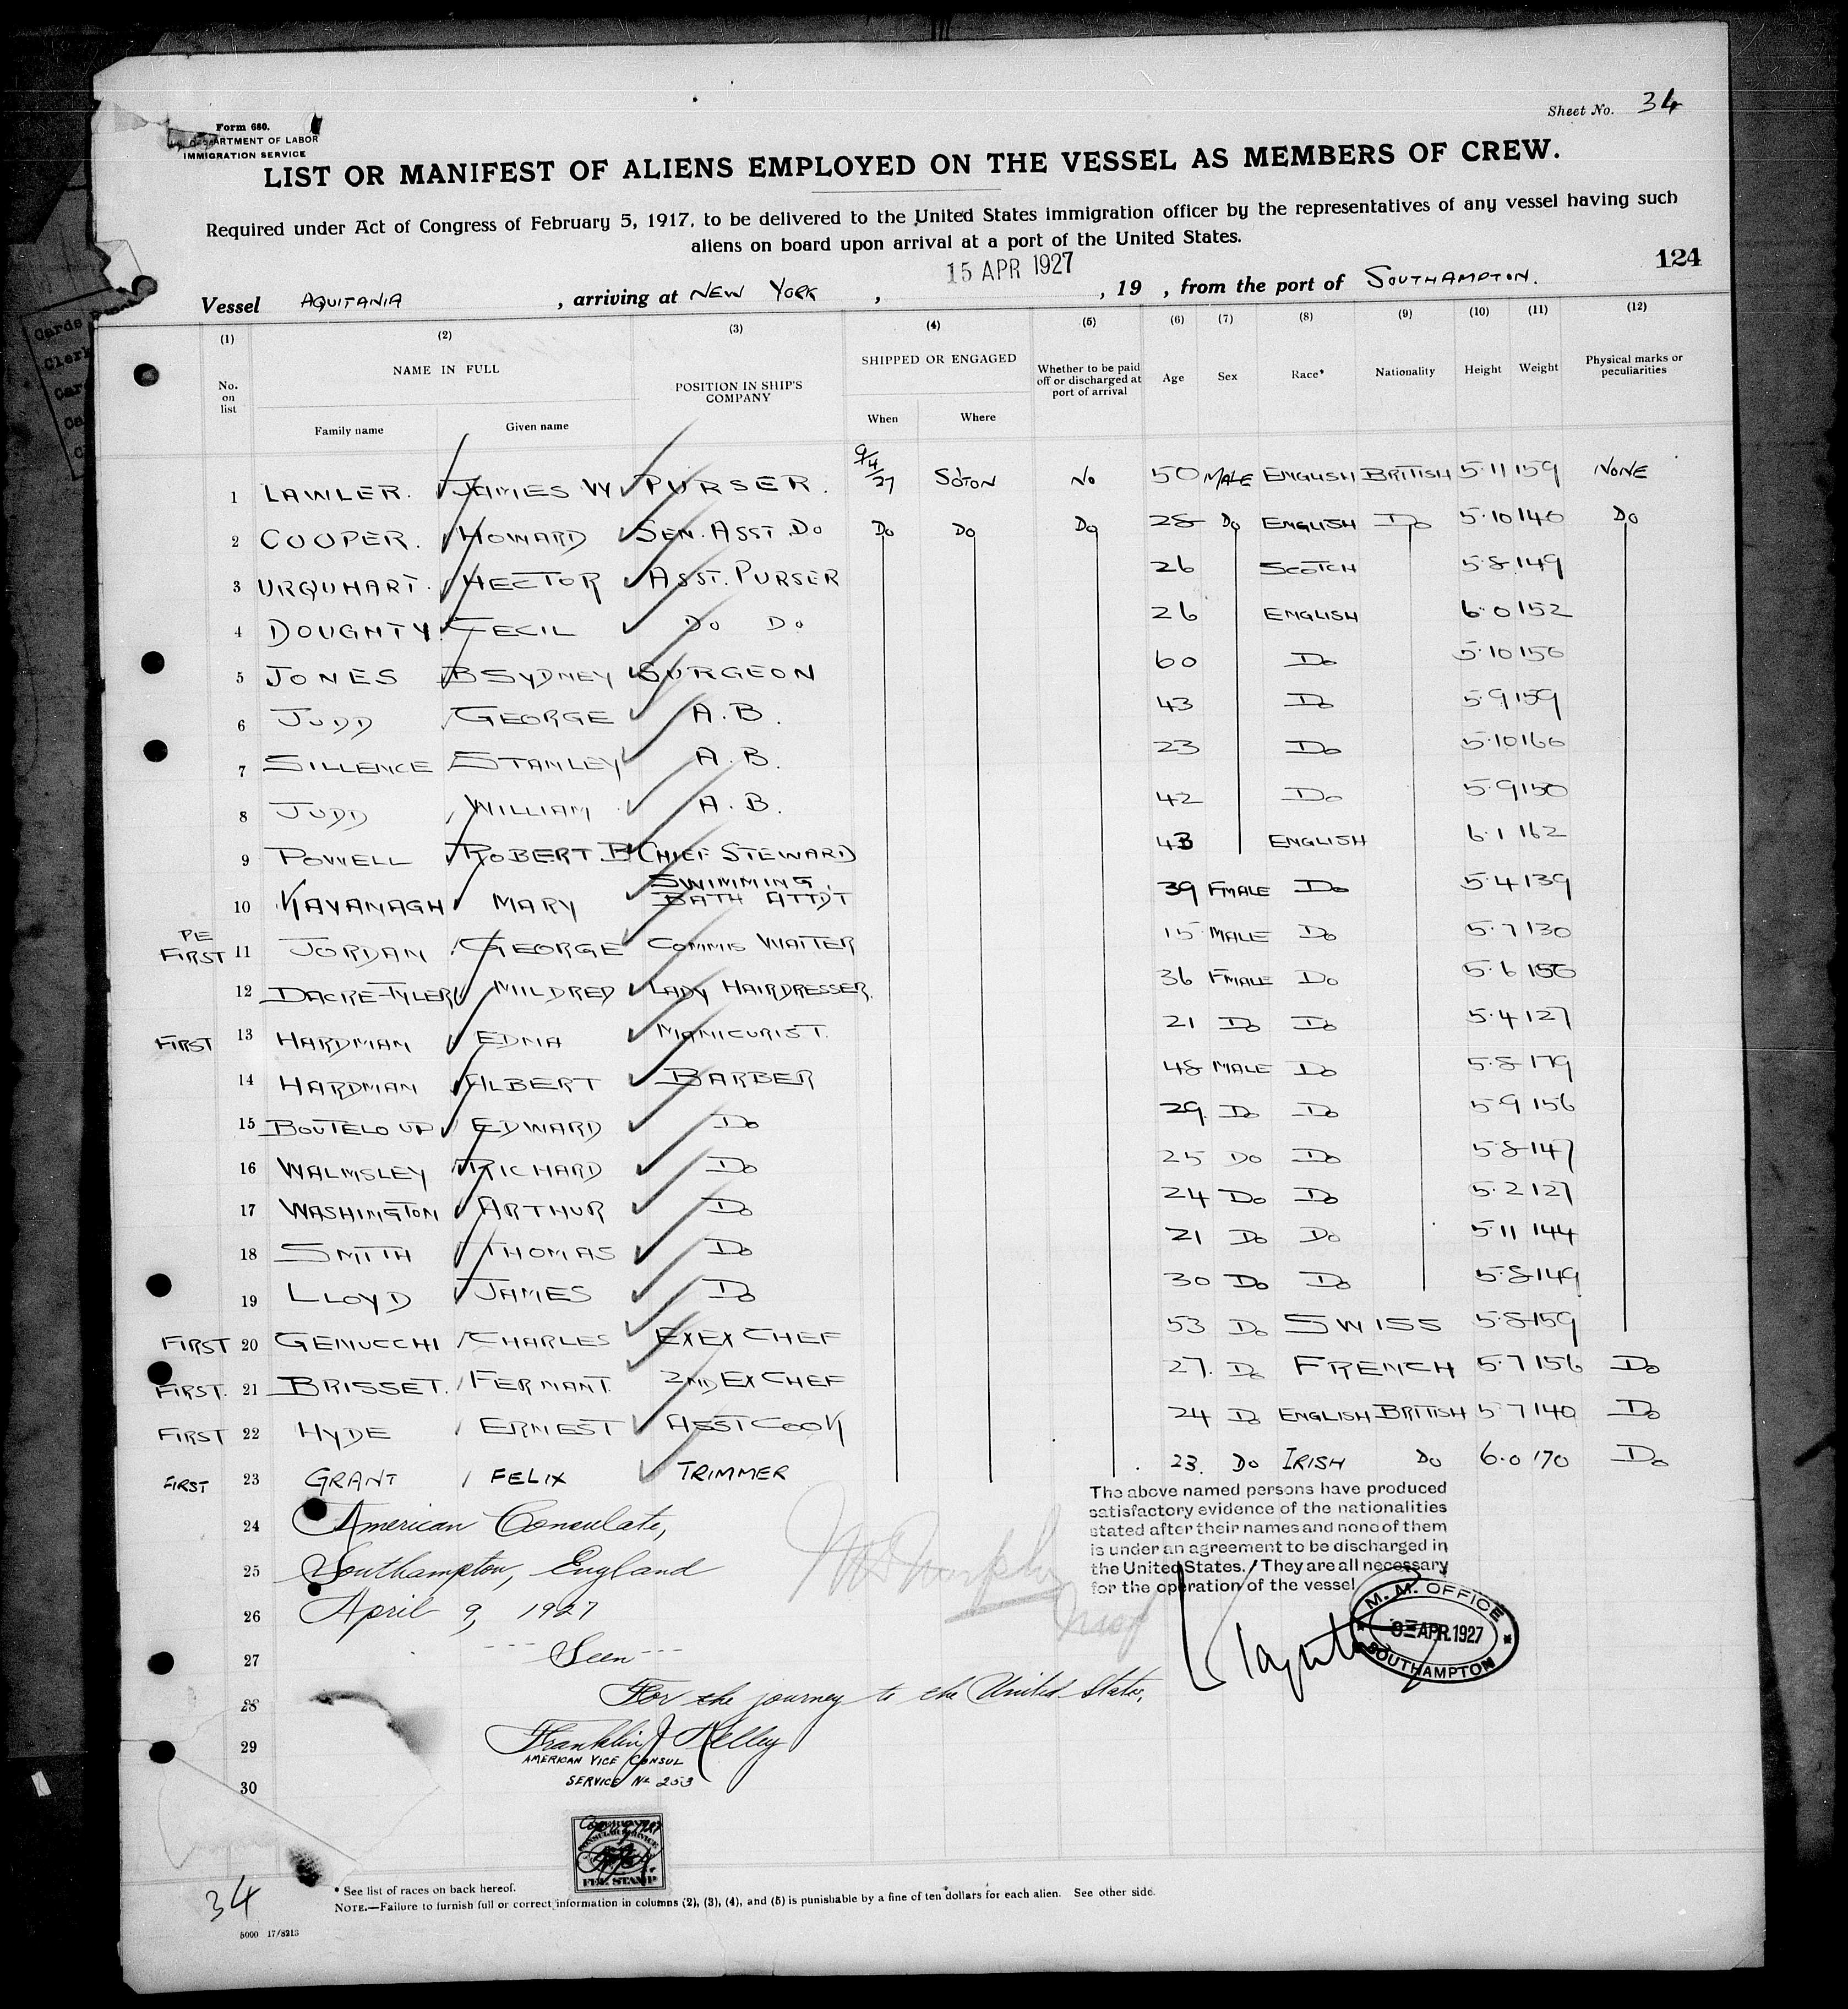 Sheet No. 34
Form 680.
DEPARTMENT OF LABOR
IMMIGRATION SERVICE
LIST OR MANIFEST OF ALIENS EMPLOYED ON THE VESSEL AS MEMBERS OF CREW.
Required under Act of Congress of February 5, 1917, to be delivered to the United States immigration officer by the representatives of any vessel having such
aliens on board upon arrival at a port of the United States.
124
15 APR 1927
Vessel AQUITANIA, arriving at NEW YORK, , 19 , from the port of SOUTHAMPTON.
(1) (2) (3) (4) (5) (6) (7) (8) (9) (10) (11) (12)
No. on list NAME IN FULL POSITION IN SHIP'S COMPANY SHIPPED OR ENGAGED Whether to be paid off or discharged at port of arrival Age Sex Race* Nationality Height Weight Physical marks or peculiarities
Family name Given name When Where
1 LAWLER. JAMES W PURSER. 9/4/27 SOTON NO 50 MALE ENGLISH BRITISH 5.11 159 NONE
2 COOPER. HOWARD SEN. ASST. DO DO DO DO 28 DO ENGLISH DO 5.10 140 DO
3 URQUHART. HECTOR ASST. PURSER 26 SCOTCH 5.8 149
4 DOUGHTY. CECIL DO DO 26 ENGLISH 6.0 152
5 JONES B SYDNEY SURGEON 60 DO 5.10 156
6 JUDD GEORGE A.B. 43 DO 5.9 159
7 SILLENCE STANLEY A.B. 23 DO 5.10 166
8 JUDD WILLIAM A.B. 42 DO 5.9 150
9 POWELL ROBERT B CHIEF STEWARD 43 ENGLISH 6.1 162
10 KAVANAGH MARY SWIMMING BATH ATTDT 39 FMALE DO 5.4 139
PIE FIRST 11 JORDAN GEORGE COMMIS WAITER 15 MALE DO 5.7 130
12 DACRE-TYLER MILDRED LADY HAIRDRESSER. 36 FMALE DO 5.6 150
FIRST 13 HARDMAN EDNA MANICURIST. 21 DO DO 5.4 127
14 HARDMAN ALBERT BARBER 48 MALE DO 5.8 179
15 BOUTELOUP EDWARD DO 29. DO DO 5.9 156
16 WALMSLEY RICHARD DO 25 DO DO 5.8 147
17 WASHINGTON ARTHUR DO 24 DO DO 5.2 127
18 SMITH THOMAS DO 21 DO DO 5.11 144
19 LLOYD JAMES DO 30 DO DO 5.8 149
FIRST 20 GENUCCHI CHARLES EXEX CHEF 53 DO SWISS 5.8 159
FIRST. 21 BRISSET. FERNANT. 2ND EX CHEF 27. DO FRENCH 5.7 156 DO
FIRST 22 HYDE ERNEST ASST COOK 24 DO ENGLISH BRITISH 5 7 140 DO
FIRST 23 GRANT FELIX TRIMMER 23. DO IRISH DO 6.0 170 DO
The above named persons have produced
satisfactory evidence of the nationalities
stated after their names and none of them
is under an agreement to be discharged in
the United States. They are all necessary
for the operation of the vessel
24 American Consulate,
25 Southampton, England
26 April 9, 1927
M. M. OFFICE
APR. 1927
SOUTHAMPTON
27 --- Seen ---
28 For the journey to the United States,
29 Franklin J Kelley
AMERICAN VICE CONSUL
30 SERVICE No 253
FEE STAMP
34
* See list of races on back hereof.
NOTE.—Failure to furnish full or correct information in columns (2), (3), (4), and (5) is punishable by a fine of ten dollars for each alien. See other side.
5000 17/8213